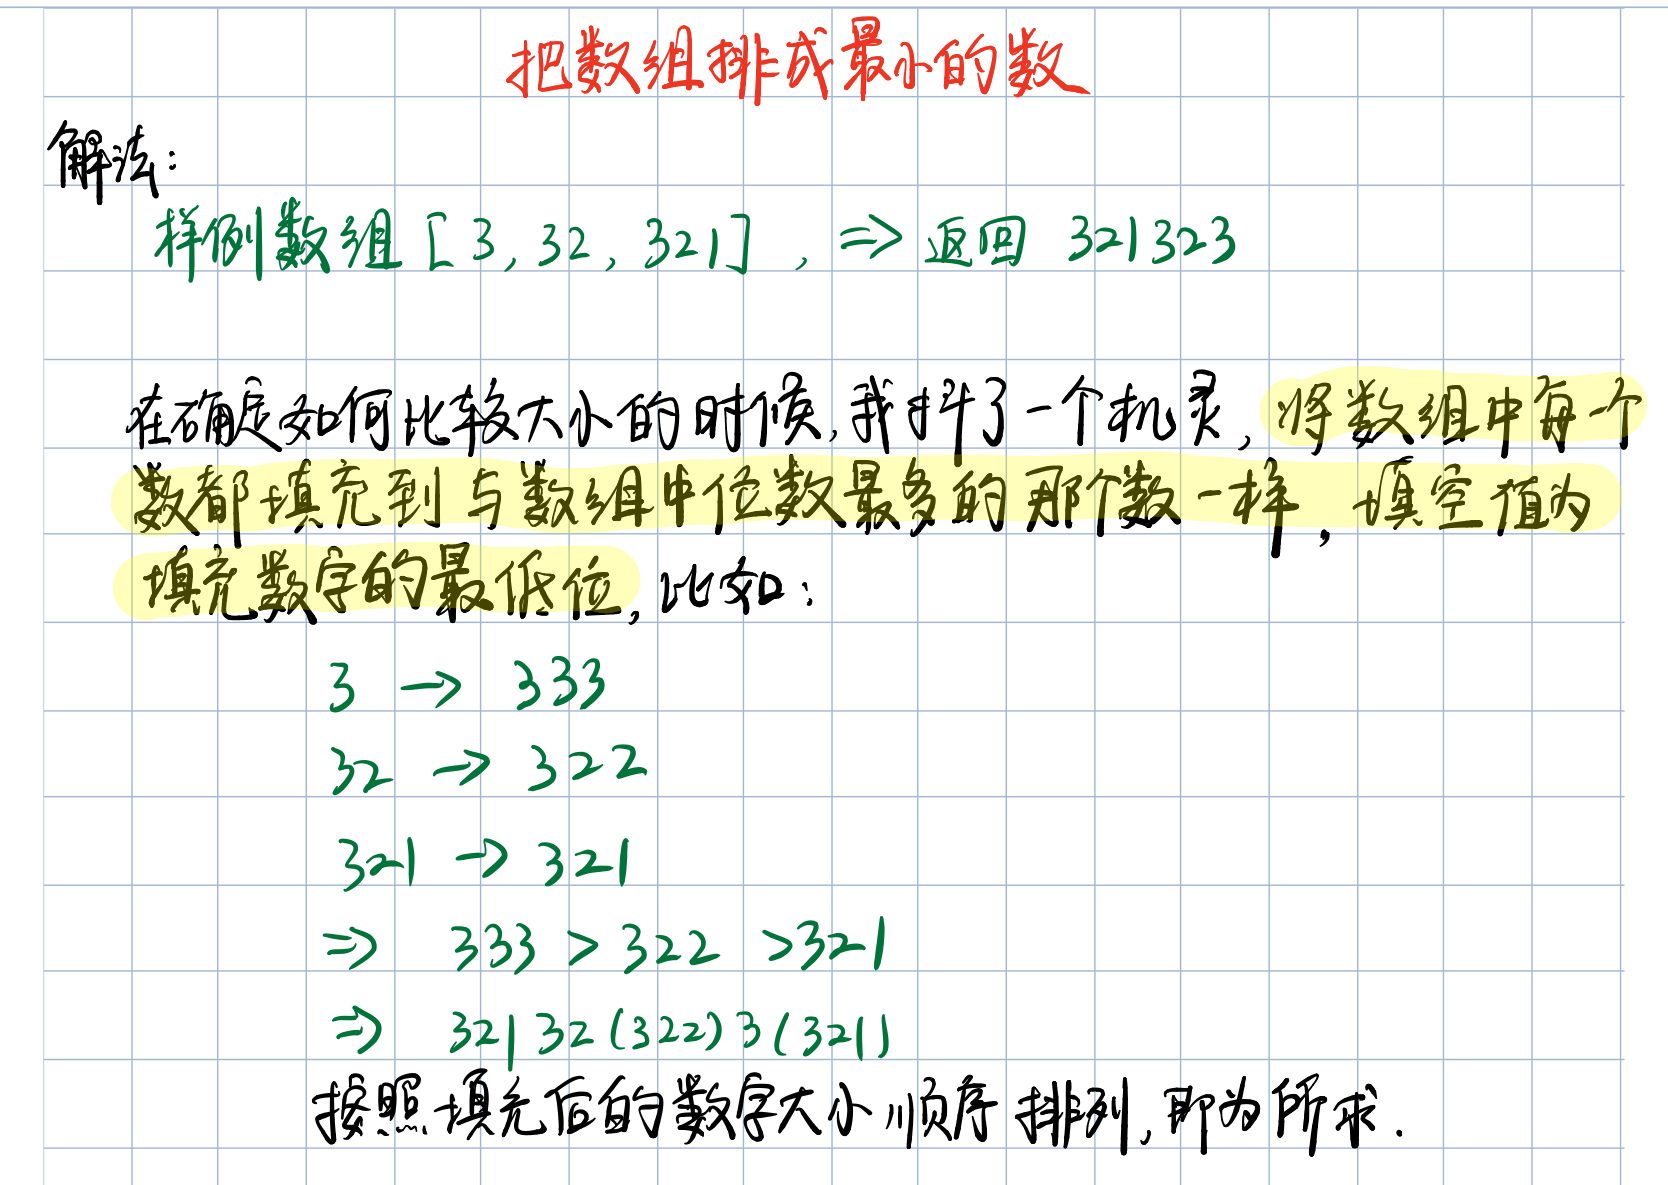 把数组排成最小的数
解法:
样例数组[3,32,321],⇒返回 321323
在确定如何比较大小的时候,我抖了一个机灵,将数组中每一个
数都填充到与数组中位数最多的那个数一样,填空值为
填充数字的最低位,比如:
3 → 333
32 → 322
321 → 321
⇒ 333 > 322 > 321
⇒ 321 32(322) 3(321)
按照填充后的数字大小顺序排列,即为所求.